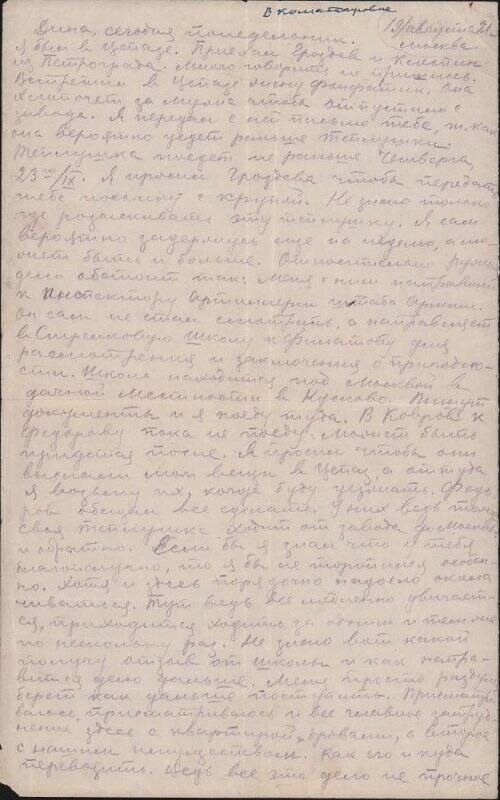 Дина, сегодня понедельник.
Москва.
Я был в Цетазе. Приехали Гроздев и
из Петрограда. Много говорить не пришлось.
Встретил в Цетазе жену Она
хлопочет за мужа чтобы отпустили с
завода. Я передал с ней письмо тебе, т.к.
она вероятно уедет раньше теплушки.
Теплушка поедет не раньше четверга,
23го/IX. Я просил Гроздева чтобы передать
тебе посылку с крупой. Не знаю только
где разыскивать эту теплушку. Я сам
вероятно задержусь еще на неделю, а мо-
жет быть и больше. Относительно ружья
дело обстоит так: меня с ним направили
к инспектору Артиллерии штаба Армии.
Он сам не стал смотреть, а направляет
в Стрелковую Школу к Филатову для
рассмотрения и заключения о пригодно-
сти. Школа находится под Москвой в
дачной местности в Кусково. Выпишут
документы и я поеду туда. В Ковров к
Федорову пока не поеду. Может быть
придется после. Я просил чтобы они
выслали мои вещи в Цетаз, а оттуда
я возьму их, когда буду уезжать. Федо-
ров обещал все сделать. У них ведь тоже
своя теплушка ходит от завода до Москвы
и обратно. Если бы я знал что у тебя
благополучно, то я бы не торопился особен-
но. Хотя и здесь порядочно надоело окола-
чиваться. Тут ведь все медленно двигает-
ся, приходится ходить за одним и тем же
по нескольку раз. Не знаю вот какой
получу отзыв от школы и как напра-
вится дело дальше. Меня просто раздумье
берет как дальше поступить. Присматри-
ваюсь, присматриваюсь и все главное затруд-
нение здесь с квартирой, дровами, а второе
с нашим имуществом. Как его и куда
перевозить. Ведь все это дело не прочное